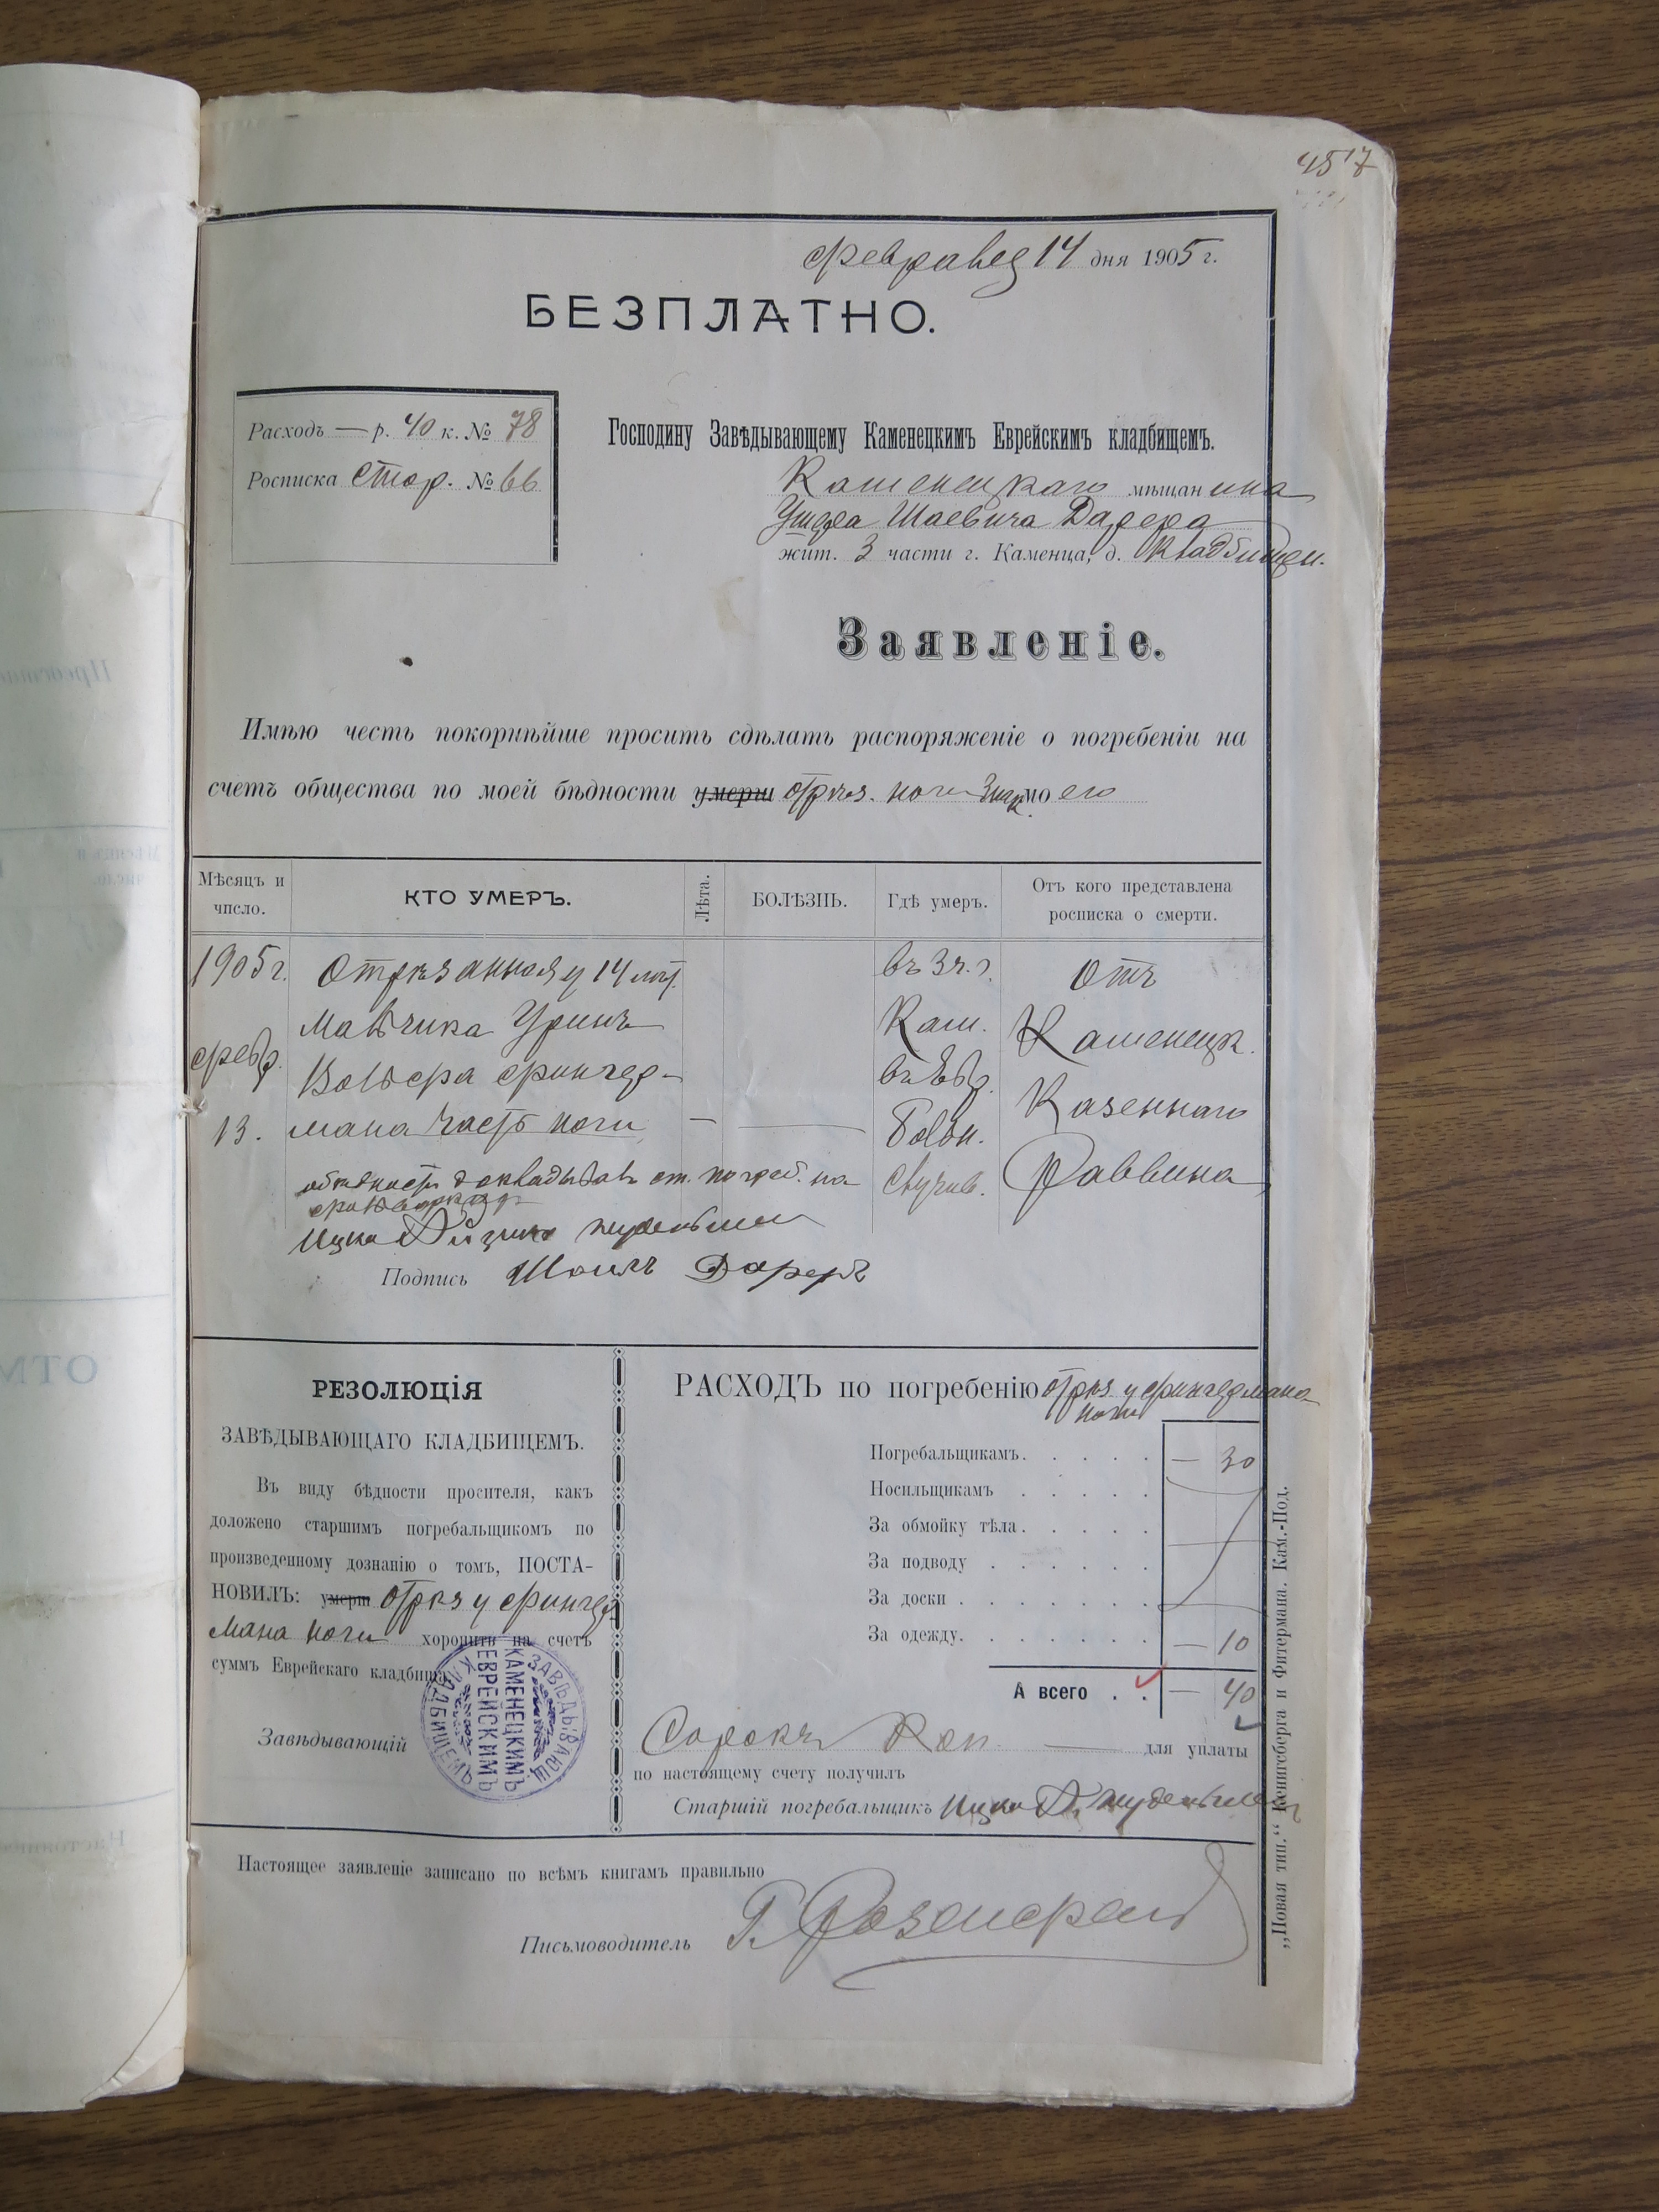 4517
февраля 14 дня 1905 г.
БЕЗПЛАТНО.
Расходъ — р. 40 к. № 78
Росписка Стор. № 66
Господину Завѣдывающему Каменецкимъ Еврейскимъ кладбищемъ.
Каменецкаго мѣщанина
Шаевича Дарера
жит. 3 части г. Каменца, д. Кладбищен.
Заявленіе.
Имѣю честь покорнѣйше просить сдѣлать распоряженіе о погребеніи на
счетъ общества по моей бѣдности умерш отрѣз. ноги Знак. моего
Мѣсяцъ и число.
КТО УМЕРЪ.
Лѣта.
БОЛѢЗНЬ.
Гдѣ умеръ.
Отъ кого представлена росписка о смерти.
1905 г. Отрѣзанная у 14 лѣт. въ 3 ч. г. Отъ
Мальчика Уринъ Кам. Каменецк.
февр. Вольфа Фингер- въ Евр. Казеннаго
13. мана часть ноги — — Больн. Раввина
о бѣдности докладывалъ ст. погреб. на Случив.
Ицко Айзикъ
Подпись Шоилъ Дареръ
РЕЗОЛЮЦІЯ
ЗАВѢДЫВАЮЩАГО КЛАДБИЩЕМЪ.
Въ виду бѣдности просителя, какъ
доложено старшимъ погребальщикомъ по
произведенному дознанію о томъ, ПОСТА-
НОВИЛЪ: умерш отрѣз у Фингер
мана ноги хоронить на счетъ
суммъ Еврейскаго кладбища.
Завѣдывающій
ЗАВѢДЫВАЮЩ
КАМЕНЕЦКИМЪ
ЕВРЕЙСКИМЪ
КЛАДБИЩЕМЪ
РАСХОДЪ по погребенію отрѣз у Фингермана
ноги
Погребальщикамъ. . . . . — 30
Носильщикамъ . . . . .
За обмойку тѣла. . . . .
За подводу . . . . . .
За доски . . . . . . .
За одежду. . . . . . . — 10
А всего . . — 40
Сорокъ Коп. — для уплаты
по настоящему счету получилъ
Старшій погребальщикъ Ицко А.
Настоящее заявленіе записано по всѣмъ книгамъ правильно
Письмоводитель Г. Розенфельд
„Новая тип.“ Кенигсберга и Фитермана. Кам.-Под.